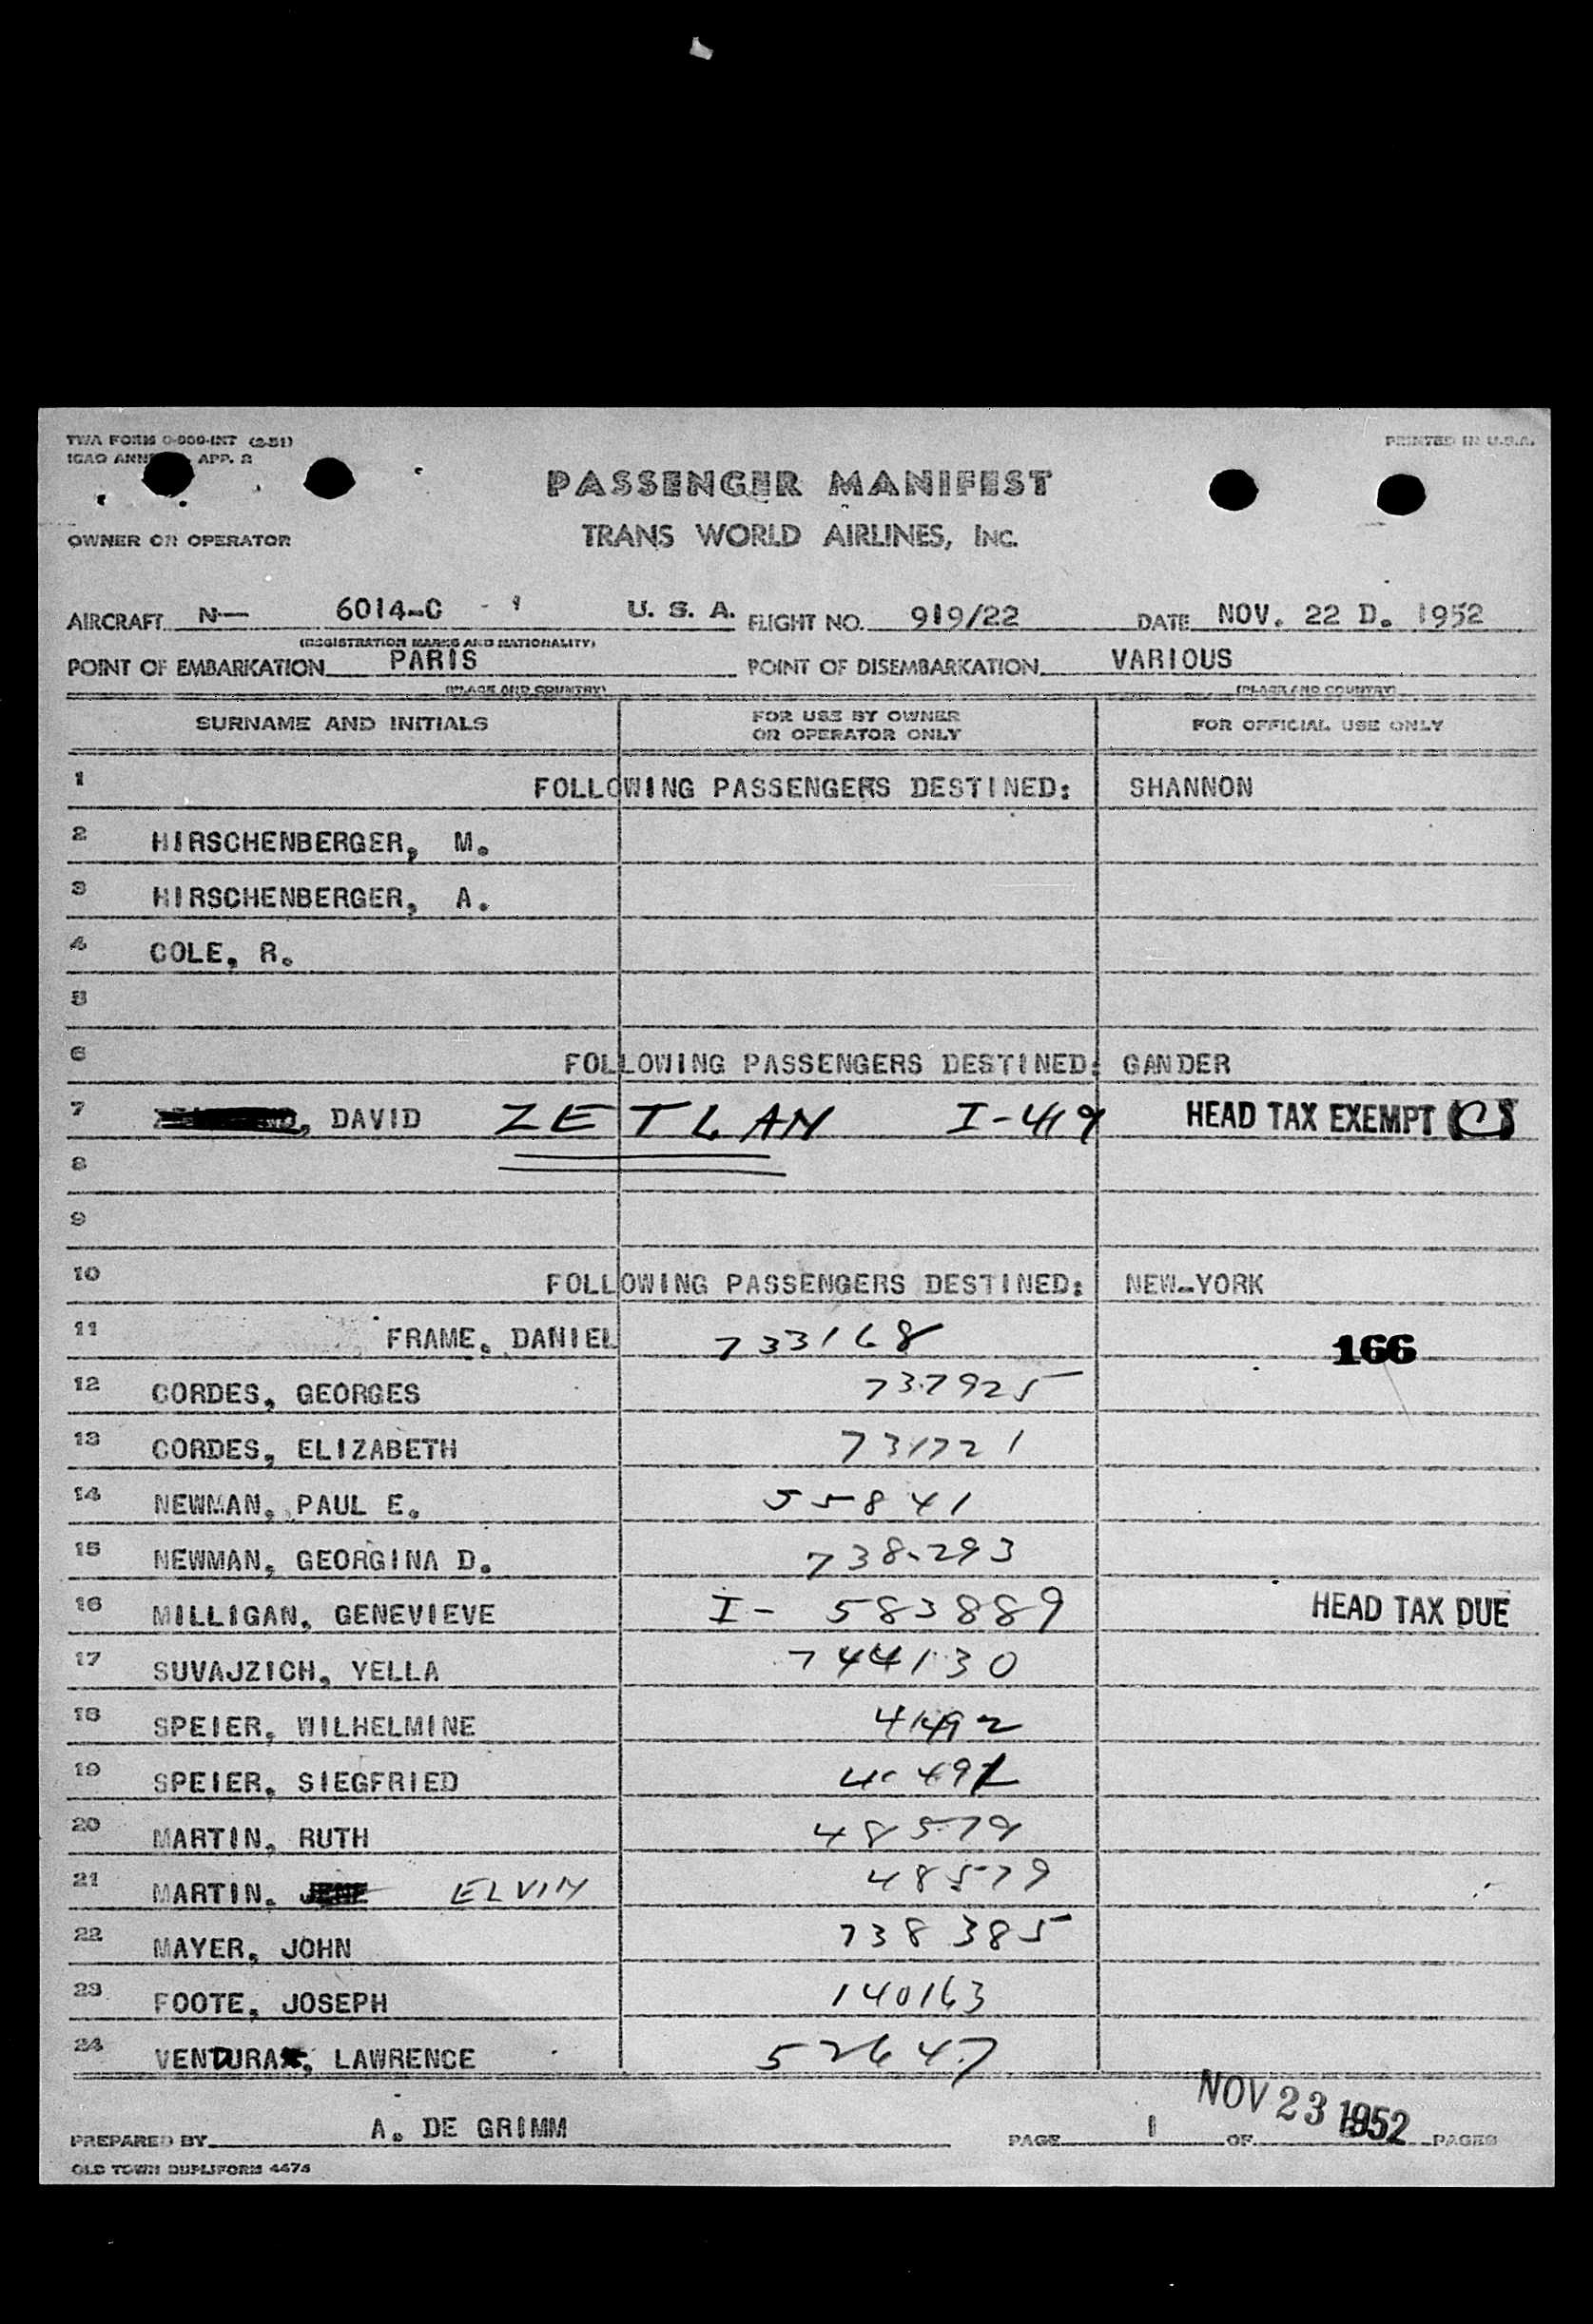 TWA FORM O-500-INT (2-51)
PRINTED IN U.S.A.
ICAO APP. 2
PASSENGER MANIFEST
OWNER OR OPERATOR
TRANS WORLD AIRLINES, INC.
AIRCRAFT N— 6014-C U. S. A. FLIGHT NO. 919/22 DATE NOV. 22 D. 1952
(REGISTRATION MARKS AND NATIONALITY)
POINT OF EMBARKATION PARIS POINT OF DISEMBARKATION VARIOUS
(PLACE AND COUNTRY) (PLACE AND COUNTRY)
SURNAME AND INITIALS FOR USE BY OWNER OR OPERATOR ONLY FOR OFFICIAL USE ONLY
1 FOLLOWING PASSENGERS DESTINED: SHANNON
2 HIRSCHENBERGER, M.
3 HIRSCHENBERGER, A.
4 COLE, R.
5
6 FOLLOWING PASSENGERS DESTINED: GANDER
7 , DAVID ZETLAN I-419 HEAD TAX EXEMPT
8
9
10 FOLLOWING PASSENGERS DESTINED: NEW-YORK
11 FRAME, DANIEL 733168 166
12 CORDES, GEORGES 737925
13 CORDES, ELIZABETH 731721
14 NEWMAN, PAUL E. 55841
15 NEWMAN, GEORGINA D. 738293
16 MILLIGAN, GENEVIEVE I- 583889 HEAD TAX DUE
17 SUVAJZICH, YELLA 744130
18 SPEIER, WILHELMINE 41492
19 SPEIER, SIEGFRIED
20 MARTIN, RUTH 48579
21 MARTIN, JENE ELVIN 48579
22 MAYER, JOHN 738385
23 FOOTE, JOSEPH 140163
24 VENDURA, LAWRENCE 52647
NOV 23 1952
PREPARED BY A. DE GRIMM PAGE 1 OF PAGES
OLD TOWN DUPLIFORM 4474